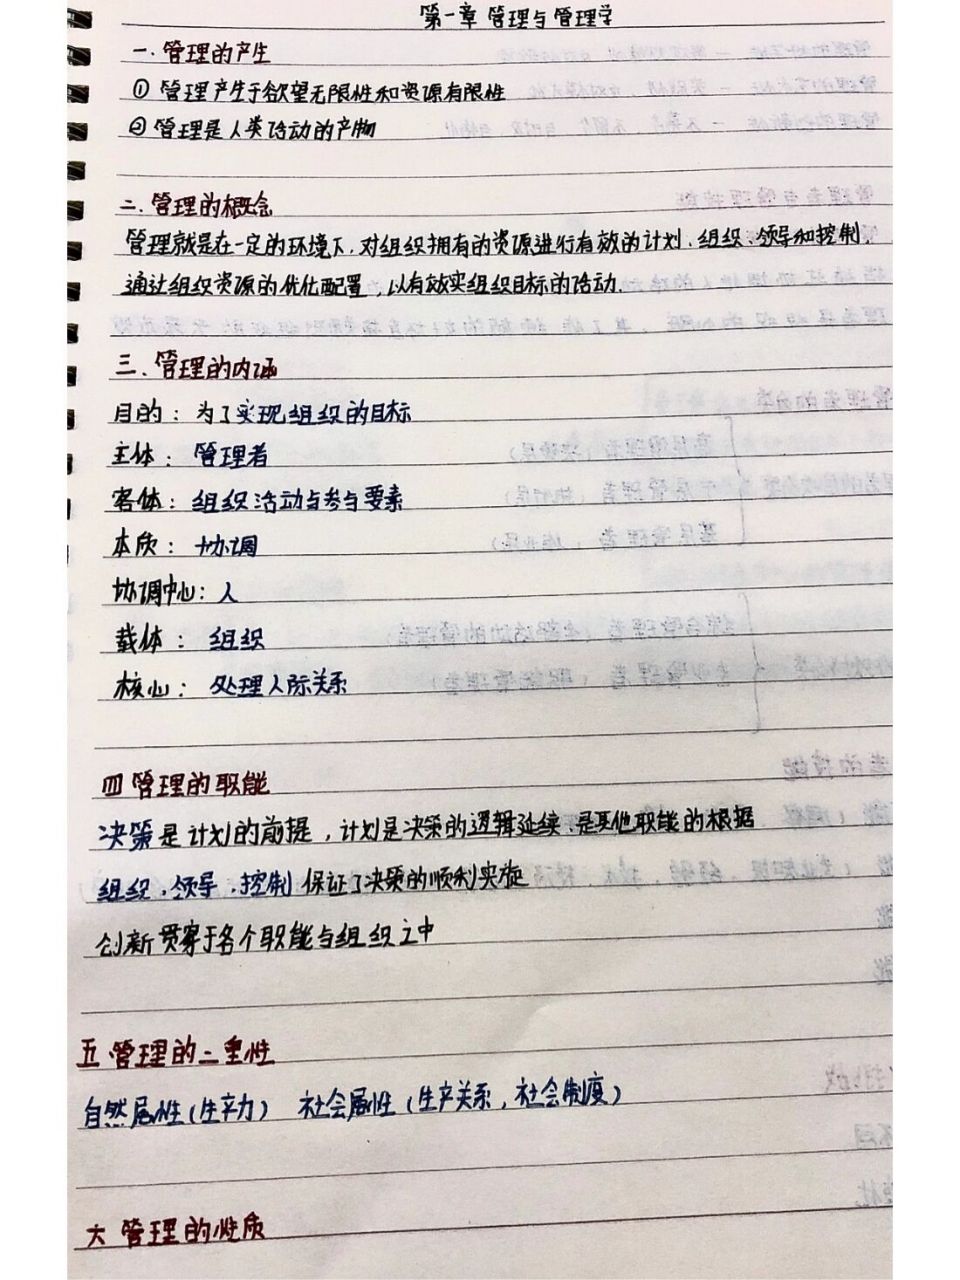 第一章 管理与管理学
一.管理的产生
① 管理产生于欲望无限性和资源有限性
② 管理是人类活动的产物
二.管理的概念
管理就是在一定的环境下,对组织拥有的资源进行有效的计划、组织、领导和控制,
通过组织资源的优化配置,以有效实组织目标的活动.
三.管理的内涵
目的:为了实现组织的目标
主体:管理者
客体:组织活动与参与要素
本质:协调
协调中心:人
载体:组织
核心:处理人际关系
四 管理的职能
决策是计划的前提,计划是决策的逻辑延续.是其他职能的根据
组织、领导、控制 保证了决策的顺利实施
创新贯穿于各个职能与组织之中
五 管理的二重性
自然属性(生产力) 社会属性(生产关系,社会制度)
六 管理的性质